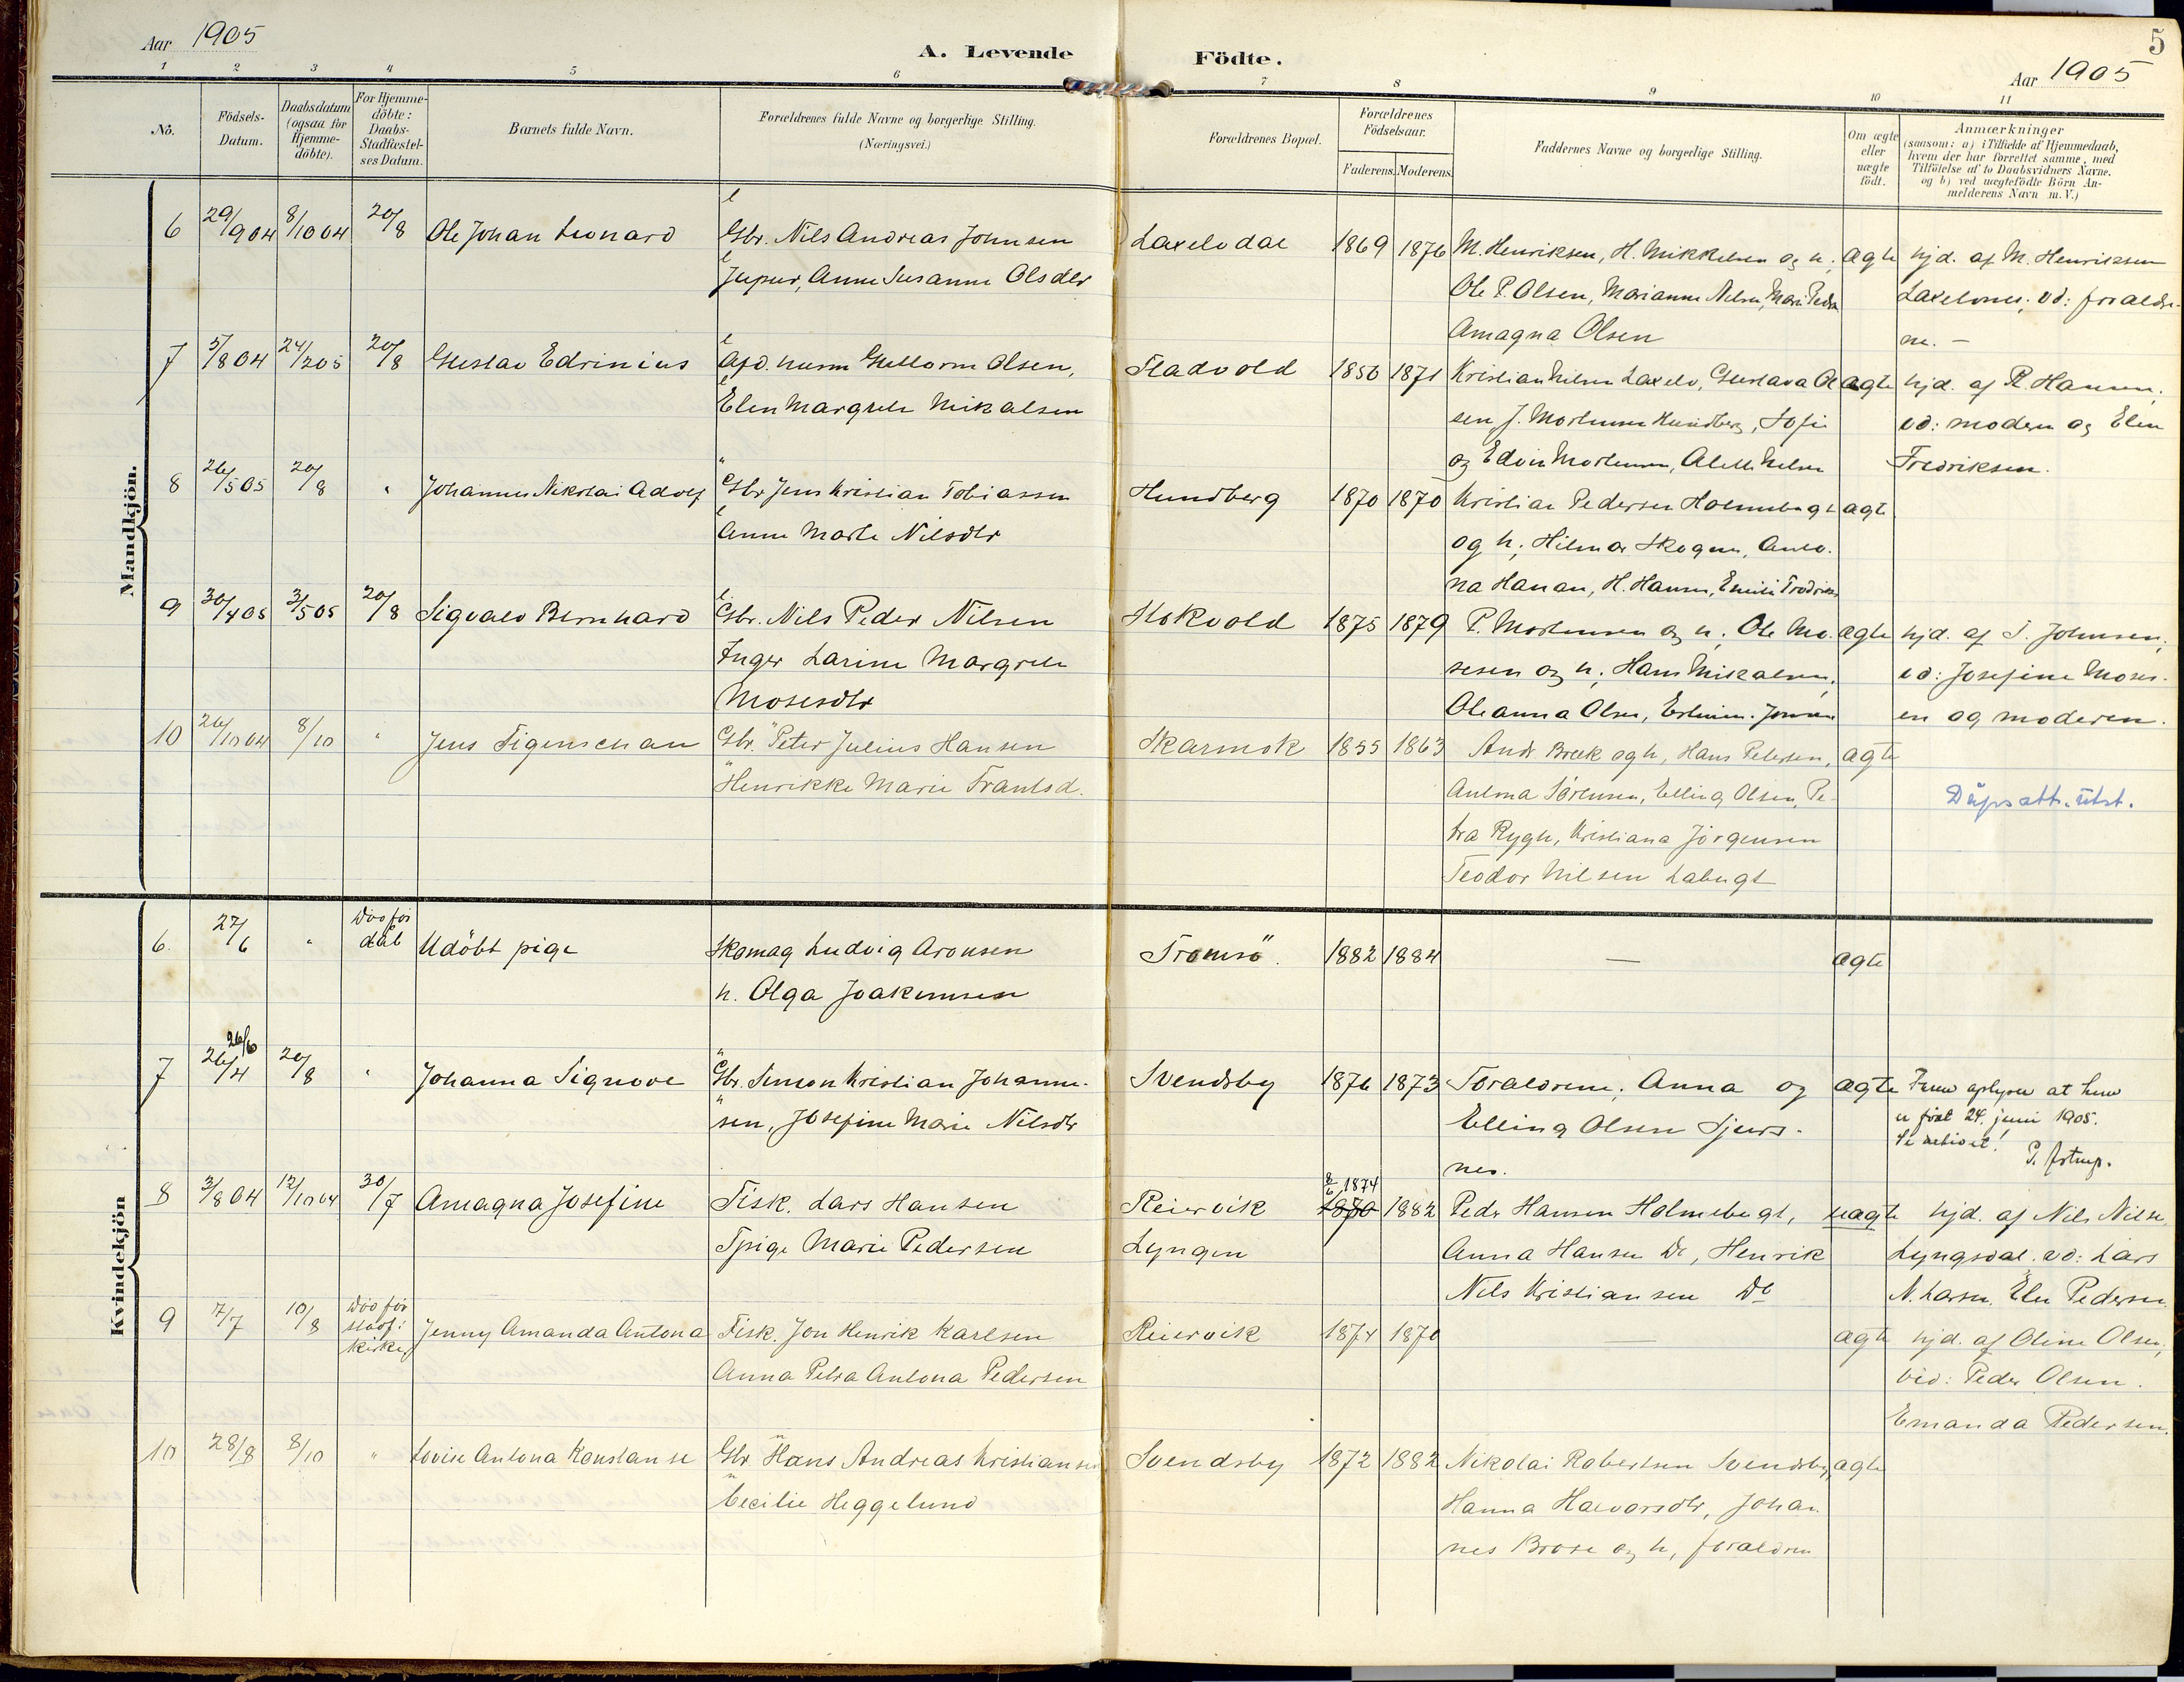 Aar 1905
A. Levende Födte.
5
Aar 1905
1 2 3 4 5 6 7 8 9 10 11
No.
Födsels-Datum.
Daabsdatum (ogsaa for Hjemme-döbte).
For Hjemme-döbte: Daabs-Stadfæstel-ses Datum.
Barnets fulde Navn.
Forældrenes fulde Navne og borgerlige Stilling.
(Næringsvei.)
Forældrenes Bopæl.
Forældrenes Födselsaar.
Faderens. Moderens.
Faddernes Navne og borgerlige Stilling.
Om ægte eller uægte födt.
Anmærkninger
(saasom: a) i Tilfælde af Hjemmedaab,
hvem der har forrettet samme, med
Tilföielse af to Daabsvidners Navne.
og b) ved uægtefödte Börn An-
melderens Navn m. V.)
Mandkjön.
6 29/9 04 8/10 04 20/8 Ole Johan Leonard Gbr. Nils Andreas Johnsen Laxelvdal 1869 1876 M. Henriksen, H. Mikkelsen og h. ægte hjd. af M. Henriksen
Anne Susanne Olsdtr Ole P. Olsen, Marianne Nilsen, Laxelvnes; vd: forældre-
Amagna Olsen ne. —
7 5/8 04 24/2 05 20/8 Gustav Edrinius Guttorm Olsen, Fladvold 1856 1871 Kristian Nilsen Laxelv, Gustava Ol ægte hjd. af R. Hansen,
Elen Margrete Mikalsen sen, J. Mortensen Hundberg, Sofie vd: moderen og Elen
og Edvin Mortensen, Nilsen Fredriksen.
8 26/5 05 20/8 " Johannes Nikolai Adolf Gbr Jens Kristian Tobiassen Hundberg 1870 1870 Kristian Pedersen Holmebugt ægte
Anne Marte Nilsdtr og h; Hilmar Skogen, Anto-
na Hansen, H. Hansen,
9 30/4 05 3/5 05 20/8 Sigvald Bernhard Gbr. Nils Peder Nilsen 1875 1879 P. Mortensen og h. Ole Mo- ægte hjd. af J. Johnsen,
Inger Larine Margrete sesen og h; Hans Mikalsen, vd: Josefine Moses-
Mosesdtr Oleanna Olsen, en og moderen.
10 26/10 04 8/10 " Jens Gbr. Peter Julius Hansen Skarmok 1855 1863 Andr. Bræk og h, Hans Petersen, ægte
Henrikke Marie Frantsd. Sörensen, Elling Olsen, Pe- Dåpsatt. utst.
tra Rygh, Kristiana Jörgensen
Teodor Nilsen Labugt
Kvindekjön
6. 27/6 " Död för dåb Udöbt pige Skomag Ludvig Aronsen Tromsö. 1882 1884 — ægte
h. Olga Joakimsen
7 26/4 26/6 20/8 " Johanna Signove Gbr. Simon Kristian Johanne- Svendsby 1876 1873 Forældrene; Anna og ægte at hun
sen, Josefine Marie Nilsdtr Elling Olsen Sjurs- er född 24. juni 1905.
nes. Se
8 3/8 04 12/10 04 30/7 Amagna Josefine Fisk. Lars Hansen Reiervik 1880 2/6 1874 1882 Peder Hansen Holmebugt, uægte hjd. af Nils Nilsen
Tpige Marie Pedersen Lyngen Anna Hansen Do, Henrik Lyngsdal. vd: Lars
Nils Kristiansen Do N. Larsen, Elen Pedersen
9 7/7 10/8 Död för stadf: i kirke Jenny Amanda Antona Fisk. Jon Henrik Karlsen Reiervik 1874 1870 — ægte hjd. af Oline Olsen,
Anna Petra Antona Pedersen vid: Peder Olsen.
Emanda Pedersen.
10 28/8 8/10 " Lovise Antona Konstanse Gbr Hans Andreas Kristiansen Svendsby 1872 1882 Nikolai Robertsen Svendsby, ægte
Cecilie Heggelund Hanna Halvorsdtr, Johan
nes Brose og h, forældrene